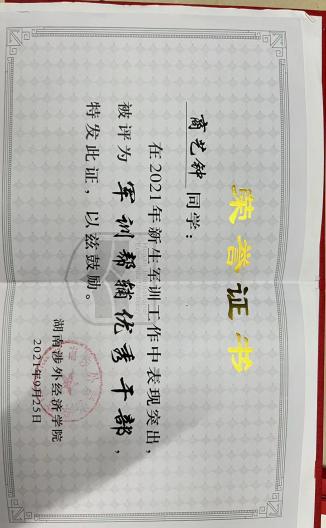 荣誉证书
商艺钟同学：
在2021年新生军训工作中表现突出，
被评为军训帮辅优秀干部，
特发此证，以兹鼓励。
湖南涉外经济学院
2021年9月25日